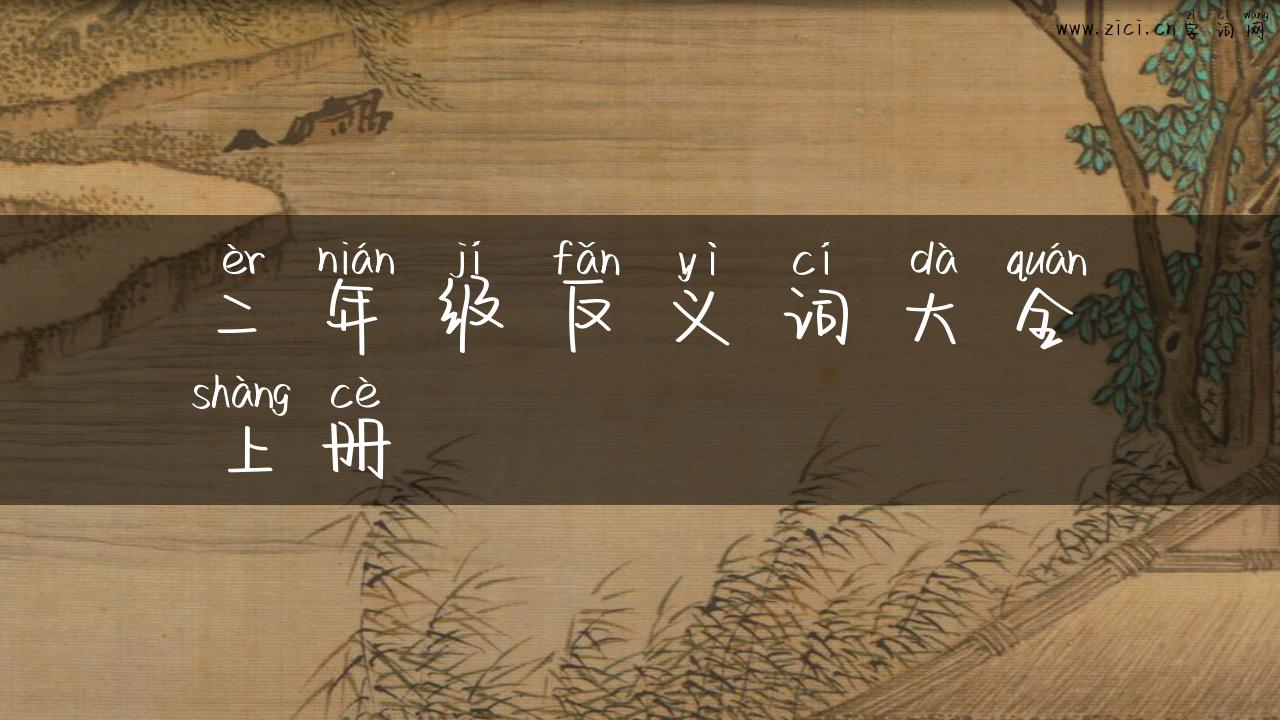 zì cí wǎng
www.zici.cn 字词网
èr nián jí fǎn yì cí dà quán
二年级反义词大全
shàng cè
上册